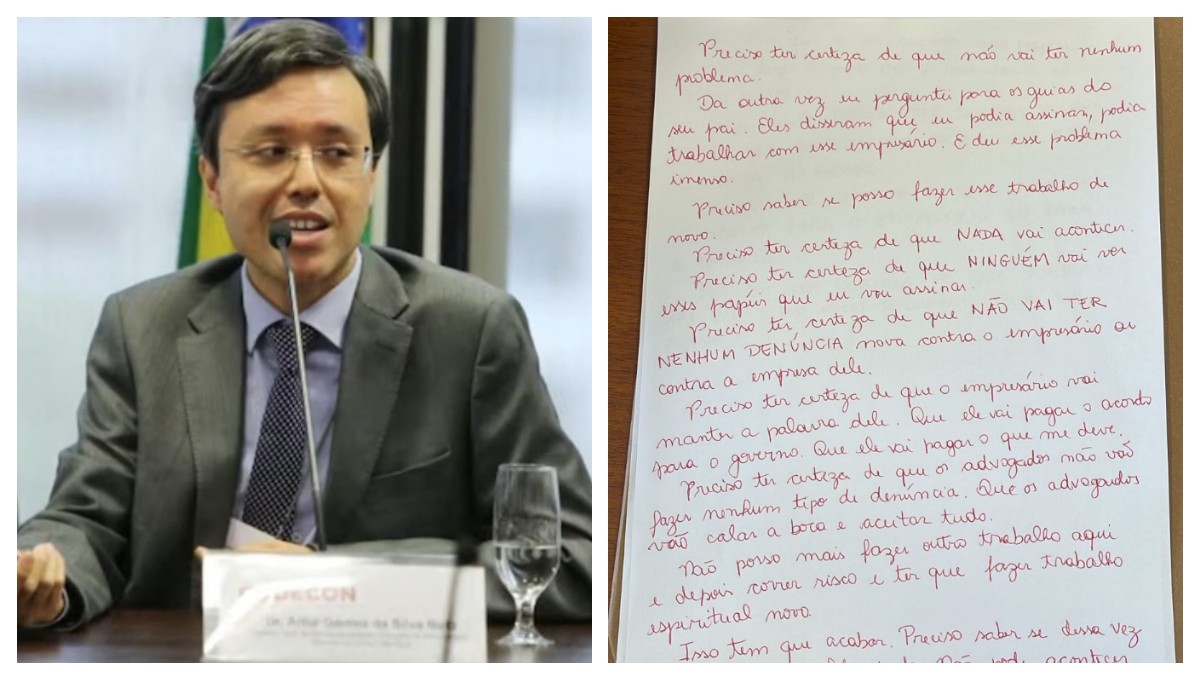 DECON
Dr. Artur Gomes da Silva Neto
Preciso ter certeza de que não vai ter nenhum
problema.
Da outra vez eu perguntei para os guias do
seu pai. Eles disseram que eu podia assinar, podia
trabalhar com esse empresário. E deu esse problema
imenso.
Preciso saber se posso fazer esse trabalho de
novo.
Preciso ter certeza de que NADA vai acontecer.
Preciso ter certeza de que NINGUÉM vai ver
esses papéis que eu vou assinar.
Preciso ter certeza de que NÃO VAI TER
NENHUM DENÚNCIA nova contra o empresário ou
contra a empresa dele.
Preciso ter certeza de que o empresário vai
manter a palavra dele. Que ele vai pagar o acordo
para o governo. Que ele vai pagar o que me deve.
Preciso ter certeza de que os advogados não vão
fazer nenhum tipo de denúncia. Que os advogados
vão calar a boca e aceitar tudo.
Não posso mais fazer outro trabalho aqui
e depois correr risco e ter que fazer trabalho
espiritual novo.
Isso tem que acabar. Preciso saber se dessa vez
acontecer